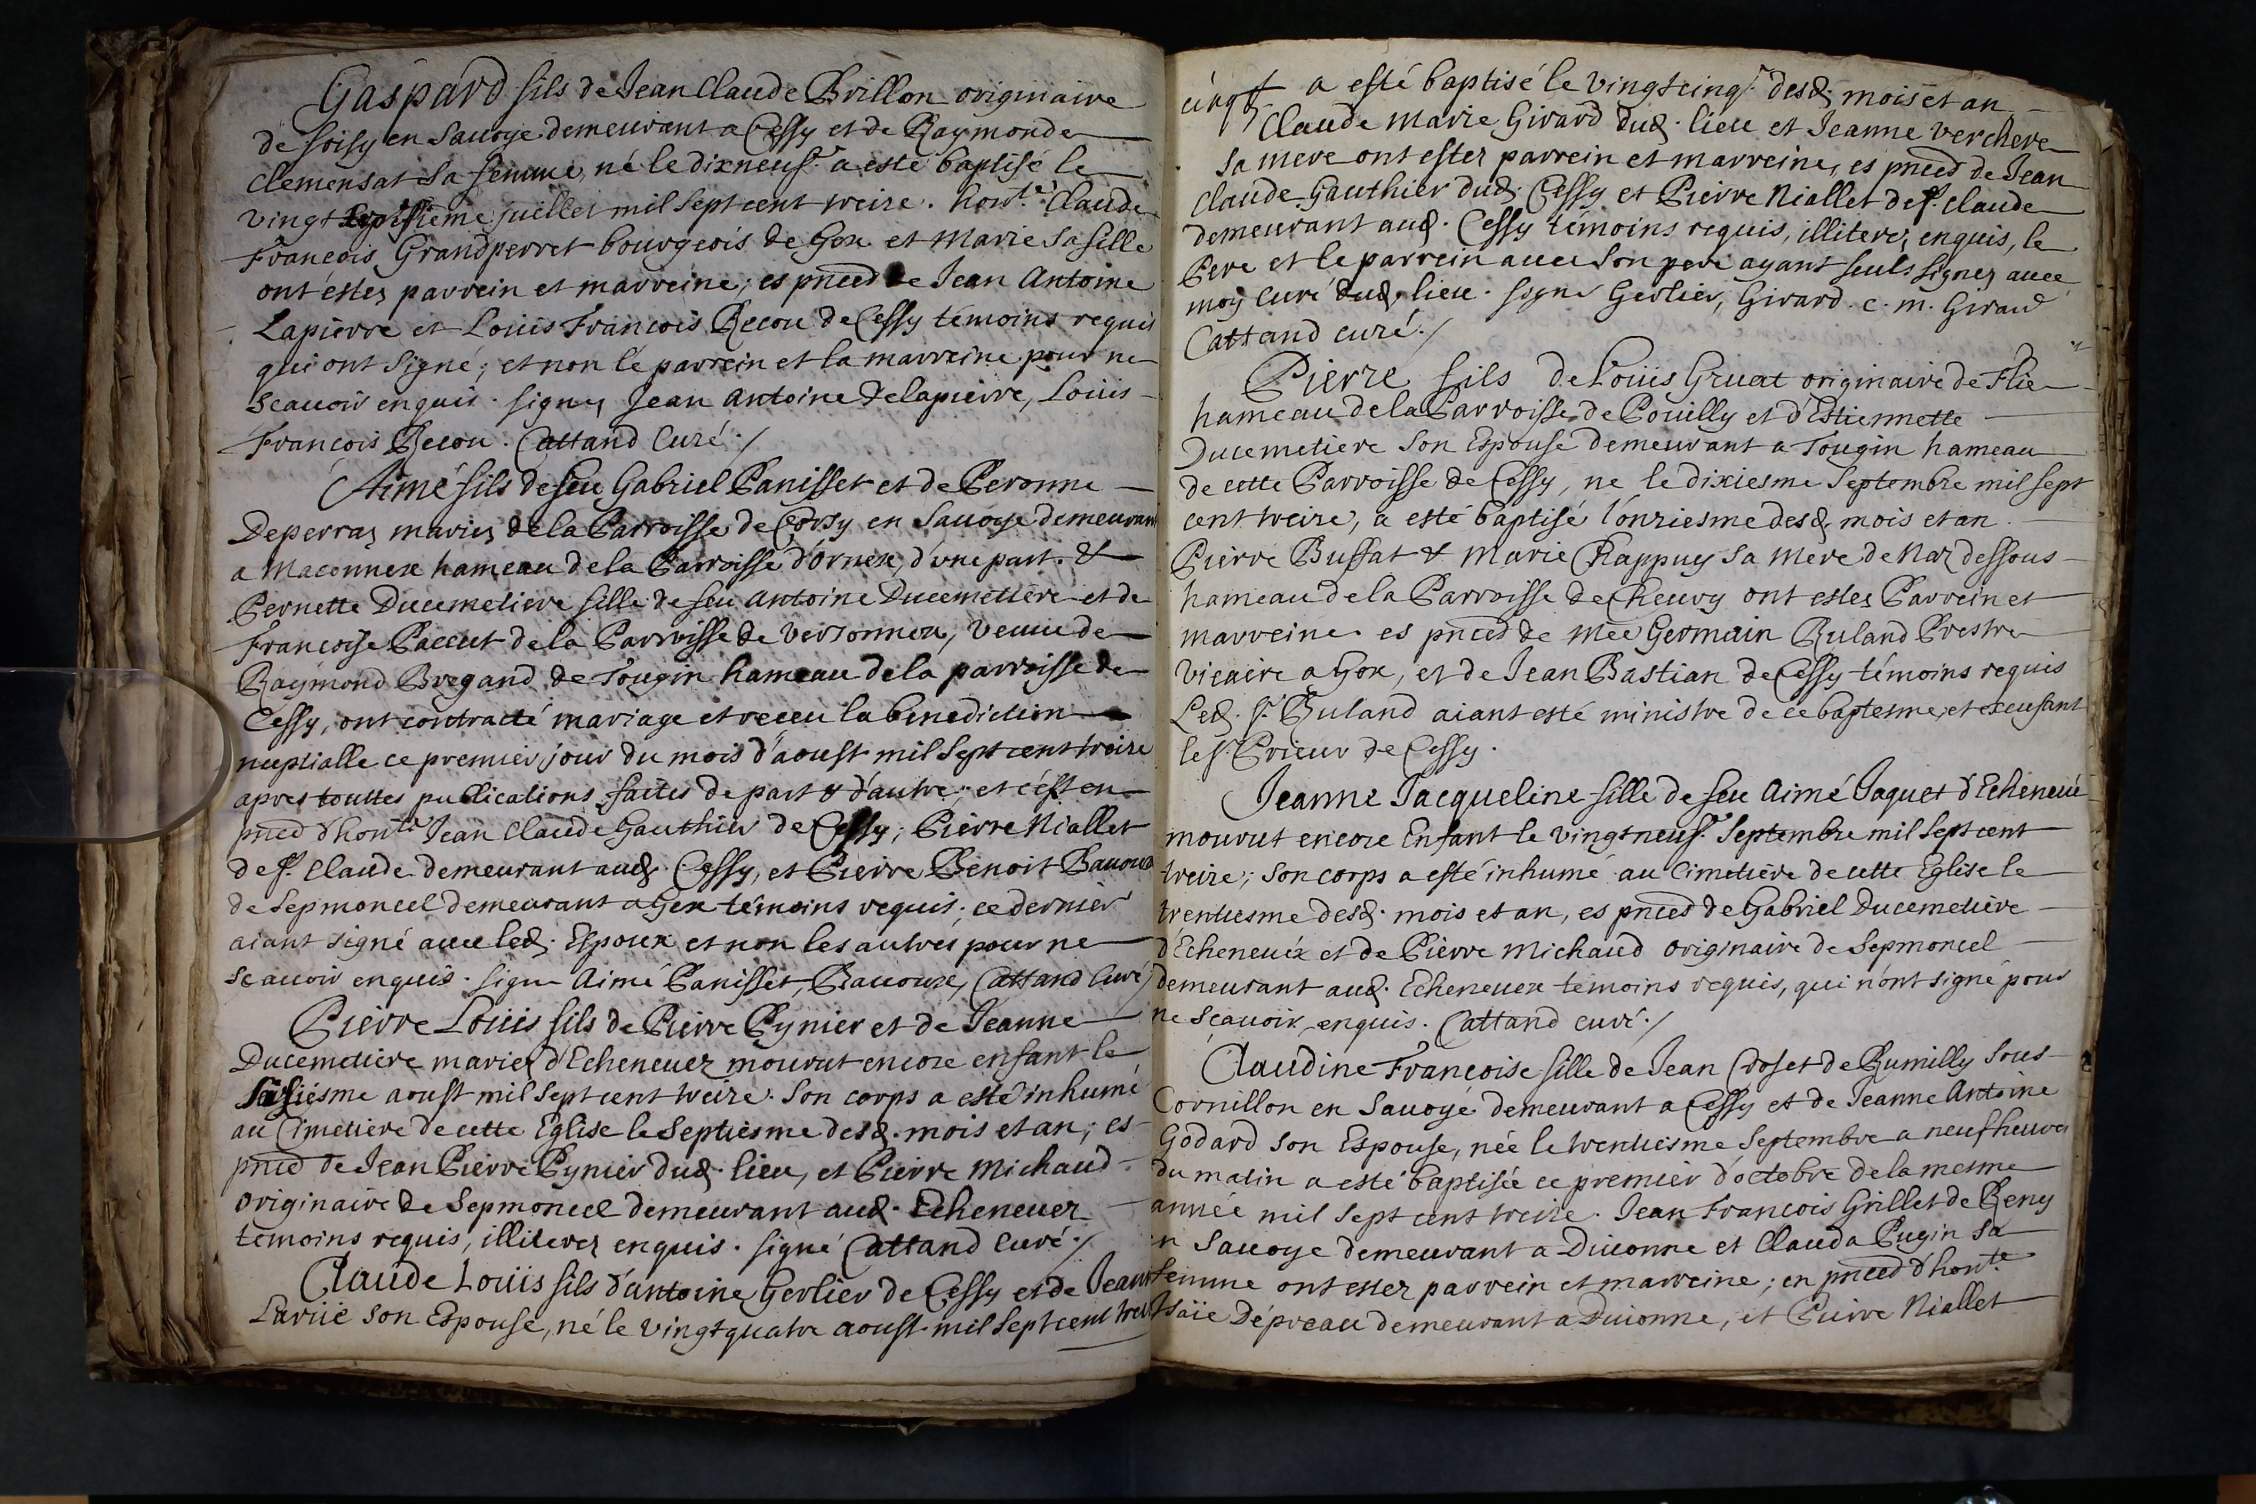 Gaspard fils de Jean Claude Brillon originaire
de soisy en Savoye demeurant a Cessy et de Raymonde
Clemensat sa femme, né le dixneuf.e a esté baptisé le
vingt juillet mil sept cent treize. hon.te Claude
Francois Grandperret bourgeois de Gex et Marie sa fille
ont éstez parrein et marreine; es pñced de Jean Antoine
Lapierre et Loüis Francois Recou de Cessy témoins requis
qui ont signé; et non le parrein et la marreine pour ne
scauoir enquis. signez Jean Antoine Delapierre, Loüis
Francois Recou. Cattand Curé./
Aimé fils de feu Gabriel Panisset et de Peronne
Deperraz mariez de la Parroisse de en Sauoye demeurant
a Maconnex hameau de la Parroisse d'ornex, d'une part. &
Pernette Ducemetiere fille de feu Antoine Ducemetiere et de
Francoise Paccut de la Parroisse de Versonnex, veuue de
Raymond Bregand de Tougin hameau de la parroisse de
Cessy, ont contracté mariage et receu la benediction
nuptialle ce premier jour du mois d'aoust mil sept cent treize
apres touttes publications faites de part & d'autre; et c'est en
pñced d'hon.te Jean Claude Gauthier de Cessy; Pierre Niallet
de f. Claude demeurant aud. Cessy, et Pierre Benoit Bauoux
de Sepmoncel demeurant a Gex témoins requis; ce dernier
aiant signé auec led. Espoux et non les autres pour ne
scauoir enquis. signe Aimé Panisset, Bauoux, Cattand Curé/
Pierre Loüis fils de Pierre Pynier et de Jeanne
Ducemetiere mariez d'Echeneuez mourut encore enfant le
aoust mil sept cent treize. Son corps a esté inhumé
au Cimetiere de cette Eglise le septiesme desd. mois et an; es
pñced de Jean Pierre Pynier dud. lieu, et Pierre Michaud
originaire de Sepmoncel demeurant aud. Echeneuez
témoins requis, illiterez enquis. signé Cattand Curé./
Claude Loüis fils d'antoine Gerlier de Cessy et de Jeanne
Lariie son Espouse, né le vingt quatre aoust mil sept cent treize
a esté baptisé le vingt cinq.e desd. mois et an
Claude Marie Girard dud. lieu et Jeanne Verchere
sa mere ont estez parrein et marreine, es pñced de Jean
Claude Gauthier dud. Cessy et Pierre Niallet de f. Claude
demeurant aud. Cessy témoins requis, illiterez enquis, le
Pere et le parrein auec son pere ayant seuls signez auec
moy Curé dud. lieu. signé Gerlier, Girard. c. m. Girard
Cattand curé./
Pierre fils de Loüis Gruat originaire de Flie
hameau de la Parroisse de Poüilly et d'Estiennette
Ducemetiere son Espouse demeurant a Tougin hameau
de cette Parroisse de Cessy, ne le dixiesme Septembre mil sept
cent treize, a esté baptisé l'onziesme desd. mois et an.
Pierre Buffat & Marie Chappuy sa mere de Naz dessous
hameau de la Parroisse de Cheury ont estez Parrein et
marreine es pnces de Mre Germain Ruland Prestre
vicaire a Gex, et de Jean Bastian de Cessy témoins requis
Led. s.r Ruland aiant esté ministre de ce baptesme, et excusant
le s.r Prieur de Cessy.
Jeanne Jacqueline fille de feu Aimé Jaquet d'Echeneué
mourut encore Enfant le vingt neuf.e Septembre mil sept cent
treize; son corps a esté inhumé au Cimetiere de cette Eglise le
trentiesme desd. mois et an, es pñced de Gabriel Ducemetiere
d'Echeneuéz et de Pierre Michaud originaire de Sepmoncel
demeurant aud. Echeneuex témoins requis, qui n'ont signé pour
ne scauoir, enquis. Cattand curé./
Claudine Francoise fille de Jean Croset de Rumilly sous
Cornillon en Sauoye demeurant a Cessy et de Jeanne Antoine
Godard son Espouse, née le trentiesme Septembre a neuf heures
du matin a esté baptisée ce premier d'octobre de la mesme
année mil sept cent treize. Jean Francois Grillet de Reny
en Sauoye demeurant a Diuonne et Clauda Pugin sa
femme ont estez parrein et marreine; en pñced d'hon.te
Isaïe Dépreau demeurant a Diuonne, et Pierre Niallet